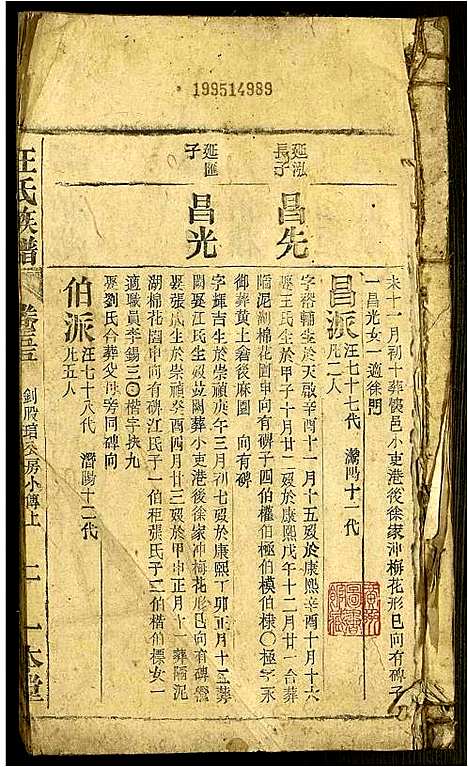 199514989
未十一月初十葬懷邑小吏港後徐家冲梅花形巳向有碑子
一昌光女一適徐門
昌派 汪七十七代 灊陽十一代
凡二人
延泓長子
昌先
字裕輔生於天啟辛酉十一月十五歿於康熙辛酉十月十六
娶王氏生於甲子十月廿二歿於康熙戊午十二月廿一合葬
陋泥湖棉花園申向有碑子四伯權伯極伯模伯棣〇極字永
御葬黄土嶺後麻園 向有碑
延匯子
昌光
字輝吉生於崇禎庚午三月初七歿於康熙丁卯正月十五葬
闕娶江氏生歿並闕葬小吏港後徐家冲梅花形巳向有碑繼
娶張氏生於崇禎癸酉四月廿三歿於甲申正月十一葬陋泥
湖棉花園申向有碑江氏子一伯柜張氏子二伯楷伯標女一
適職員李錫三〇楷字扶九
娶劉氏合葬父母旁同碑向
伯派 汪七十八代 灊陽十二代
凡五人
汪氏族譜
卷三
釗股瑄公房小傳上
一本堂